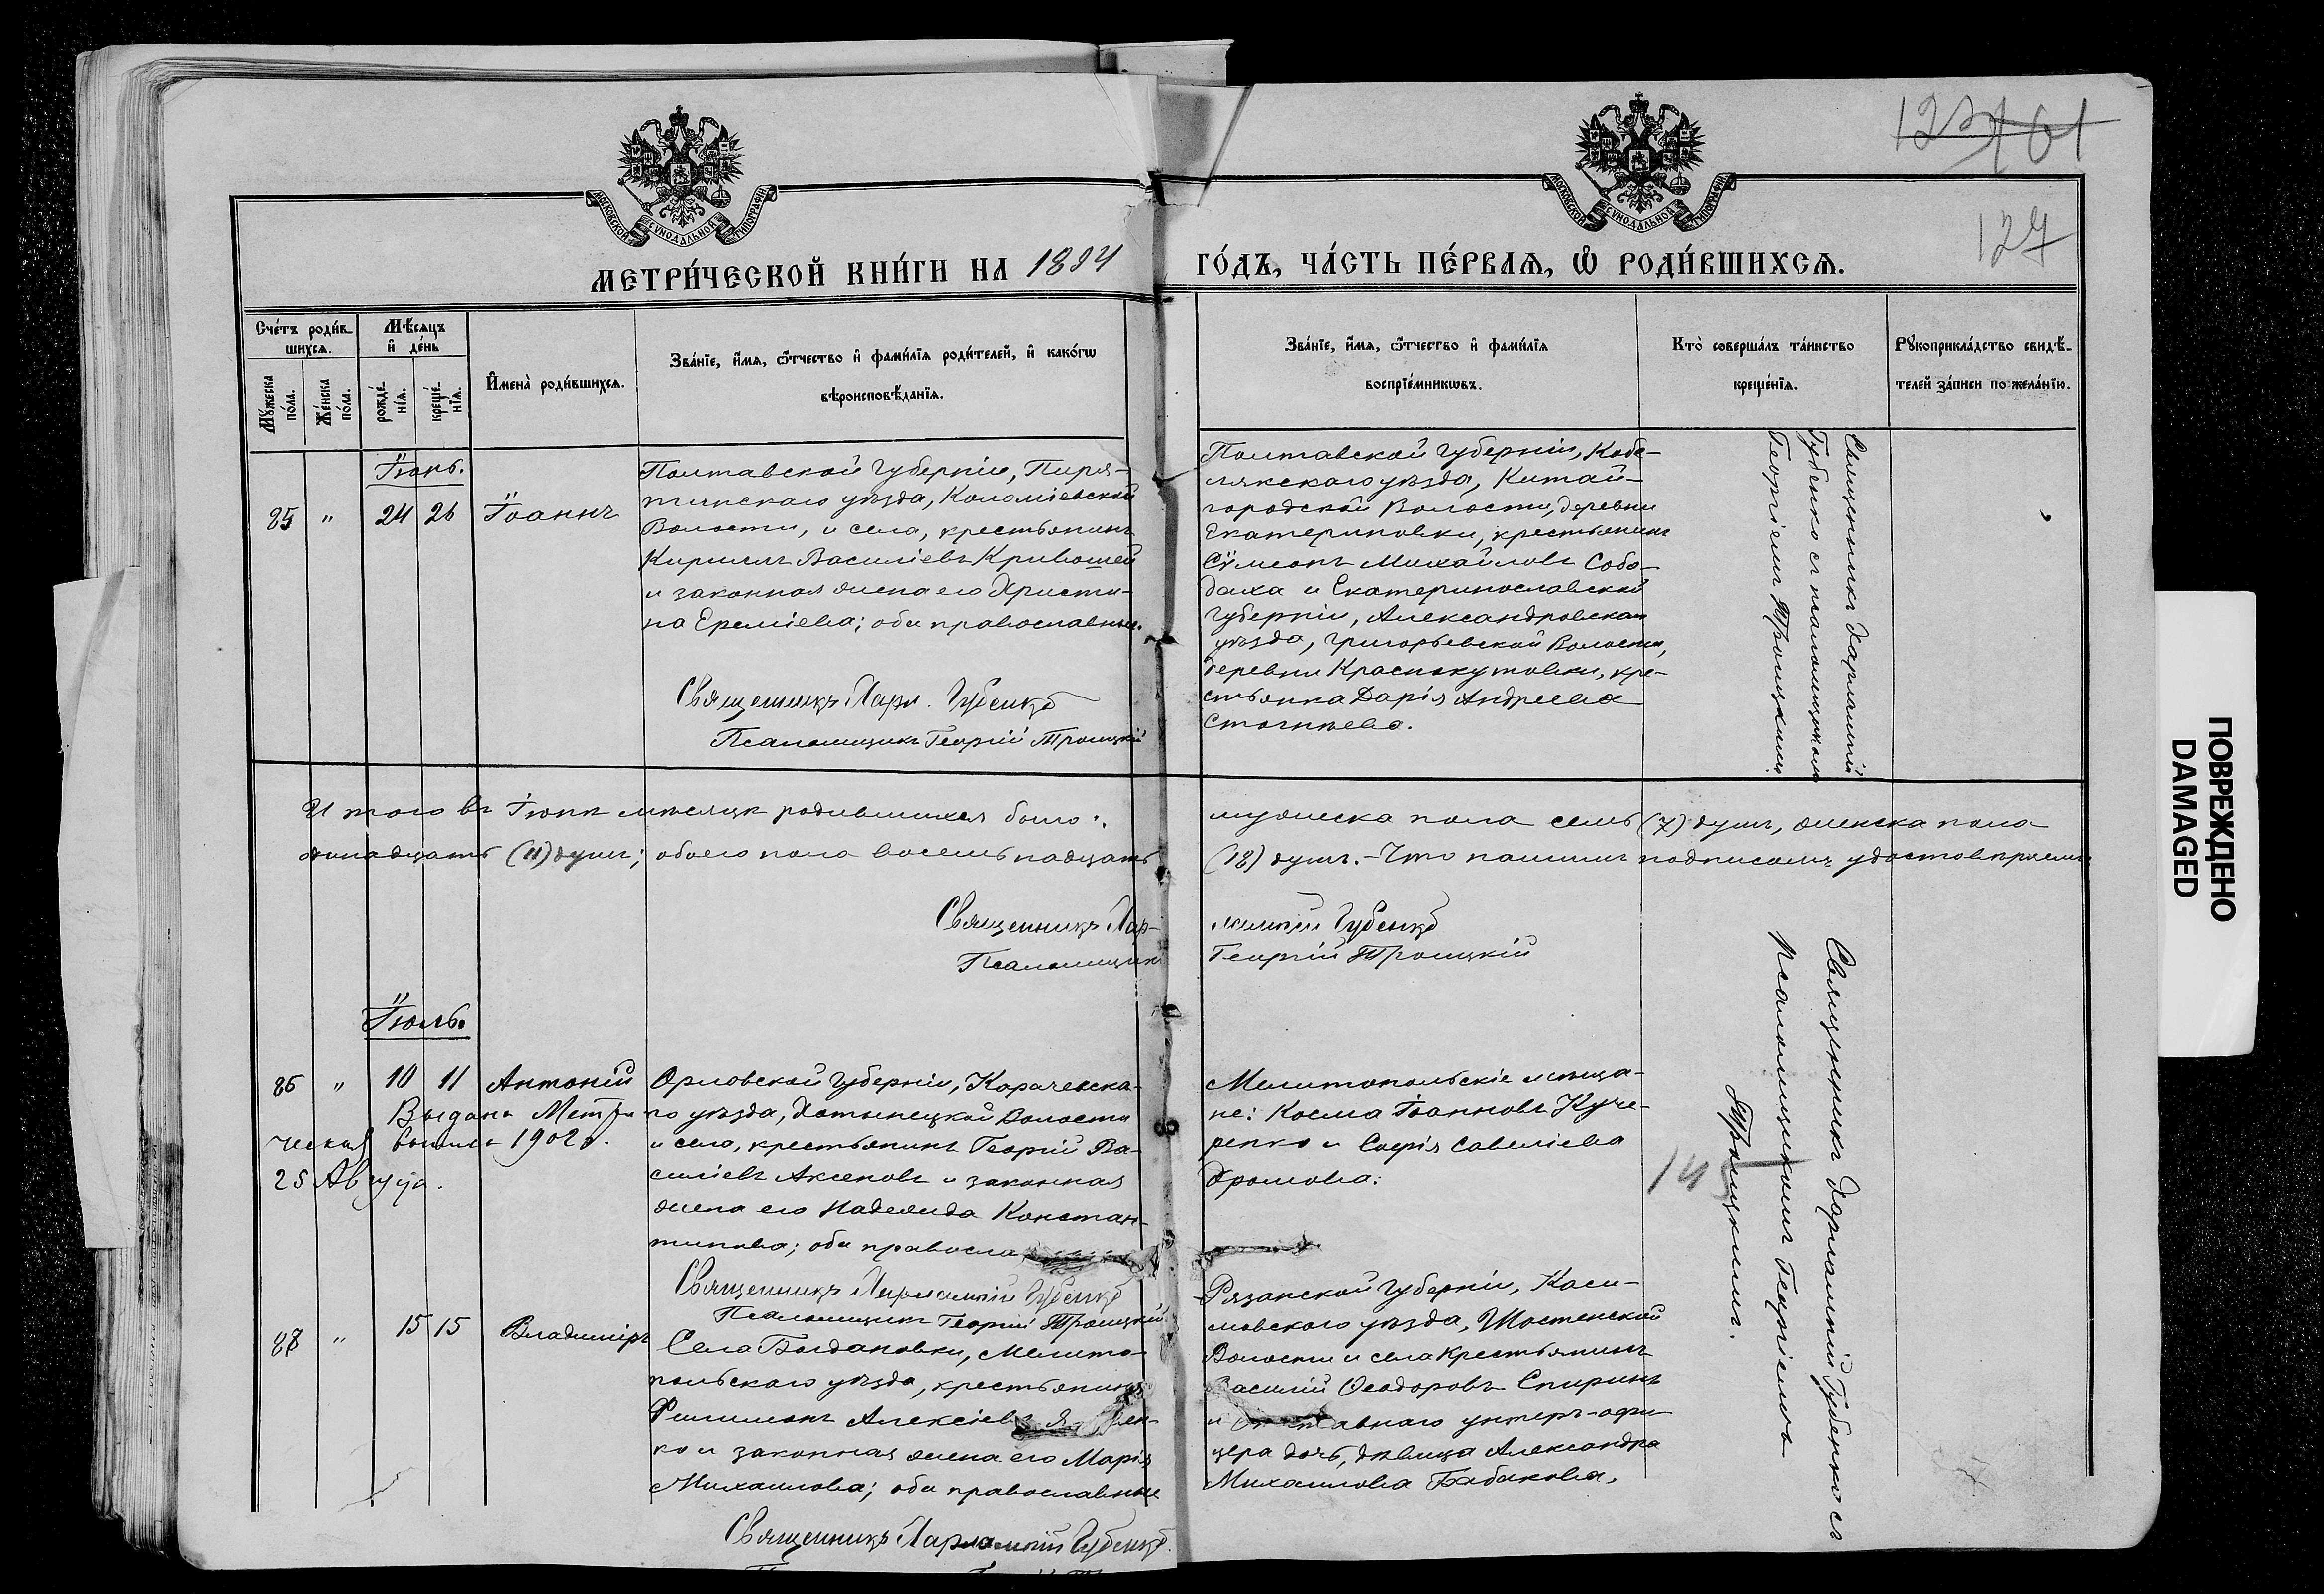 123
101
127
МОСКОВСКОЙ СѴНОДАЛЬНОЙ ТИПОГРАФІИ
МОСКОВСКОЙ СѴНОДАЛЬНОЙ ТИПОГРАФІИ
МЕТРИ́ЧЕСКОЙ КНИ́ГИ НА 1894 ГО́ДЪ, ЧА́СТЬ ПЕ́РВАѦ, Ѽ РОДИ́ВШИХСѦ.
Сче́тъ роди́в-
шихсѧ.
Мꙋ́жеска по́ла.
Же́нска по́ла.
Мѣ́сѧцъ
и҆ де́нь
рожде́-
нїѧ.
креще́-
нїѧ.
И҆мена̀ роди́вшихсѧ.
Зва́нїе, и҆́мѧ, ѻ҆́тчество и҆ фами́лїѧ роди́телей, и҆ како́гѡ
вѣроисповѣ́данїѧ.
Зва́нїе, и҆́мѧ, ѻ҆́тчество и҆ фами́лїѧ
воспрїе́мникѡвъ.
Кто̀ соверша́лъ та́инство
креще́нїѧ.
Рꙋкоприкла́дство свидѣ́-
телей за́писи по жела́нїю.
Іюнь.
85 " 24 26 Іоаннъ
Полтавской губерніи, Пиря-
тинскаго уѣзда, Коломіевской
Волости, и села, крестьянинъ
Кириллъ Василіевъ Кривошей
и законная жена его Христи-
на Ереміева; оба православные.
Священникъ Харл. Губенко
Псаломщикъ Георгій Троицкій
Полтавской губерніи, Кобе-
лякскаго уѣзда, Китай-
городской Волости, деревни
Екатериновки, крестьянинъ
Сѵмеонъ Михайловъ Собо-
даха и Екатеринославской
губерніи, Александровскаго
уѣзда, Григорьевской Волости,
деревни Краснокутовки, кре-
стьянка Дарія Андреева
Стогніева.
Священникъ Харлампій
Губенко съ псаломщикомъ
Георгіемъ Троицкимъ
Итого въ Іюнѣ мѣсяцѣ родившихся было: мужеска пола семь (7) душъ, женска пола
одинадцать (11) душъ; обоего пола восемьнадцать (18) душъ. - Что нашимъ подписомъ удостовѣряемъ
Священникъ Харлампій Губенко
Псаломщикъ Георгій Троицкій
Іюль.
86 " 10 11 Антоній
Выдана Метри-
ческая выпись 1902 г.
25 Августа.
Орловской губерніи, Карачевска-
го уѣзда, Хотынецкой Волости
и села, крестьянинъ Георгій Ва-
силіевъ Аксеновъ и законная
жена его Надежда Констан-
тинова; оба правосла
Священникъ Харлампій Губенко
Псаломщикъ Георгій Троицкій
Мелитопольскіе мѣща-
не: Косма Іоанновъ Куче-
ренко и Софія Савеліева
Хромова.
14
Священникъ Харлампій Губенко съ
псаломщикомъ Георгіемъ
Троицкимъ.
87 " 15 15 Владиміръ
Села Богдановки, Мелито-
польскаго уѣзда, крестьянинъ
Филимонъ Алексіевъ
ко и законная жена его Марія
Михаилова; оба православные
Священникъ Харлампій Губенко.
Рязанской губерніи, Каси-
мовскаго уѣзда, Шостенской
Волости и села крестьянинъ
Василій Ѳеодоровъ Спиринъ
и отставнаго унтеръ-офи-
цера дочь, дѣвица Александра
Михаилова Бабакова.
ПОВРЕЖДЕНО
DAMAGED